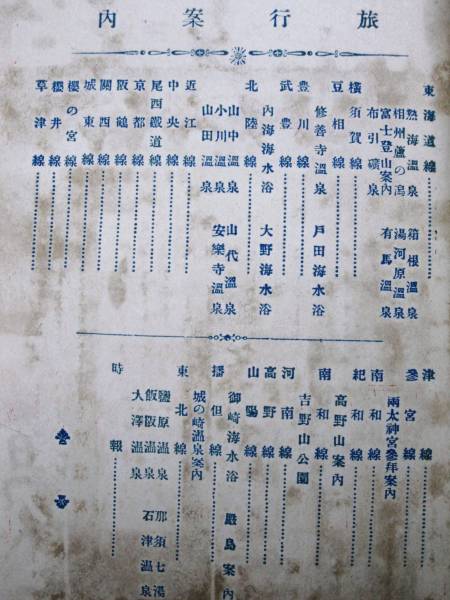 旅行案內
東海道線
熱海溫泉 箱根溫泉
相州蘆の湯 湯河原溫泉
富士登山案內 有馬溫泉
布引礦泉
橫須賀線
豆相線
修善寺溫泉 戶田海水浴
豊川線
武豊線
內海海水浴 大野海水浴
北陸線
山中溫泉 山代溫泉
小川溫泉
山田溫泉 安樂寺溫泉
近江線
中央線
尾西鐵道
京都線
阪鶴線
關西線
城東線
櫻の宮線
櫻井線
草津線
津線
參宮線
兩太神宮參拜案內
南和線
紀和線
高野山案內
南和線
吉野山公園
河南線
高野線
山陽線
御崎海水浴 嚴島案內
播但線
城の崎溫泉案內
東北線
鹽原溫泉 那須七湯
飯阪溫泉
大澤溫泉 石津溫泉
時報